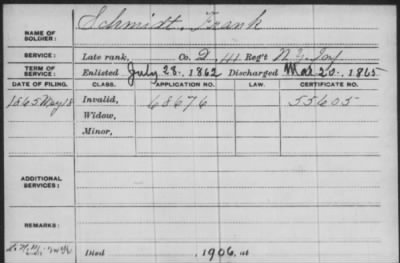 NAME OF SOLDIER: Schmidt, Frank
SERVICE: Late rank, Co. D, 41 Reg't N.Y. Inf
TERM OF SERVICE: Enlisted July 28, 1862 Discharged Mar 20, 1865
DATE OF FILING. CLASS. APPLICATION NO. LAW. CERTIFICATE NO.
1865 May 18 Invalid, 68676 55605
Widow,
Minor,
ADDITIONAL SERVICES:
REMARKS:
Died , 1906, at